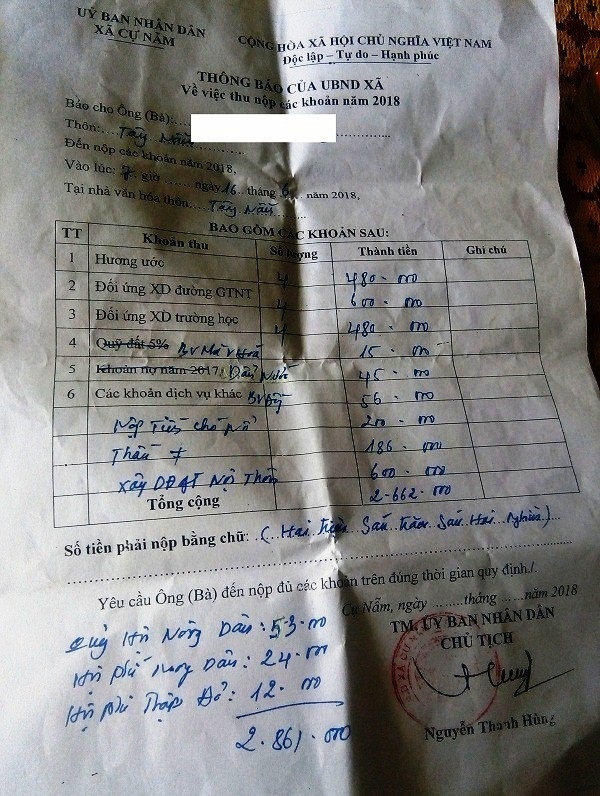 UỶ BAN NHÂN DÂN
XÃ CỰ NẪM
CỘNG HÒA XÃ HỘI CHỦ NGHĨA VIỆT NAM
Độc lập – Tự do – Hạnh phúc
THÔNG BÁO CỦA UBND XÃ
Về việc thu nộp các khoản năm 2018
Báo cho Ông (Bà):.....
Thôn:.....Tây Nẫm
Đến nộp các khoản năm 2018,
Vào lúc: 7 giờ ...... ngày 16 tháng 6 năm 2018,
Tại nhà văn hóa thôn:....Tây Nẫm
BAO GỒM CÁC KHOẢN SAU:
TT Khoản thu Số lượng Thành tiền Ghi chú
1 Hương ước 4 480.000
2 Đối ứng XD đường GTNT 4 600.000
3 Đối ứng XD trường học 4 480.000
4 Quỹ đất 5% BV 15.000
5 Khoản nợ năm 2017: 45.000
6 Các khoản dịch vụ khác 56.000
Nộp Tiền chó 200.000
186.000
Xây Nội Thôn 600.000
Tổng cộng 2.662.000
Số tiền phải nộp bằng chữ: (..Hai..Triệu..Sáu..Trăm..Sáu..Hai..Nghìn)...
Yêu cầu Ông (Bà) đến nộp đủ các khoản trên đúng thời gian quy định./.
Cự Nẫm, ngày .........tháng .......năm 2018
TM. ỦY BAN NHÂN DÂN
CHỦ TỊCH
Quỹ Hội Nông Dân: 53.000
Hội phí Nông Dân: 24.000
Hội phí Thập Đỏ: 12.000
2.861.000
Nguyễn Thanh Hùng